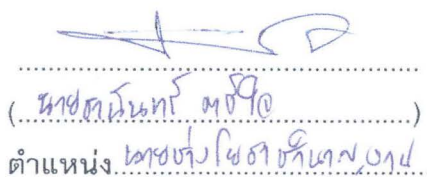 (นายธานินทร์ ................)
ตำแหน่ง นายช่างโยธาชำนาญงาน